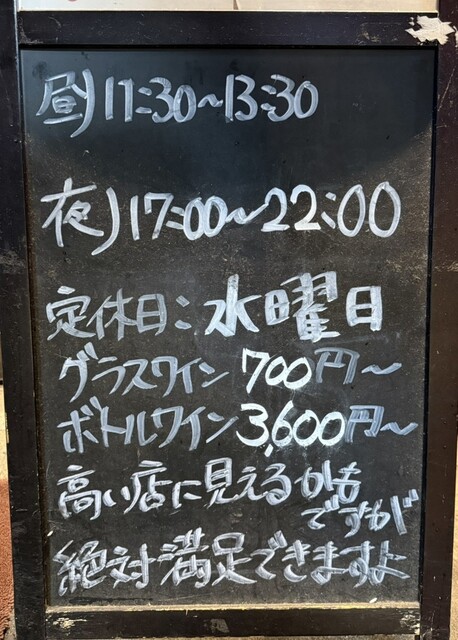 昼)11:30~13:30
夜)17:00~22:00
定休日:水曜日
グラスワイン700円~
ボトルワイン3,600円~
高い店に見えるかも
ですが
絶対満足できますよ